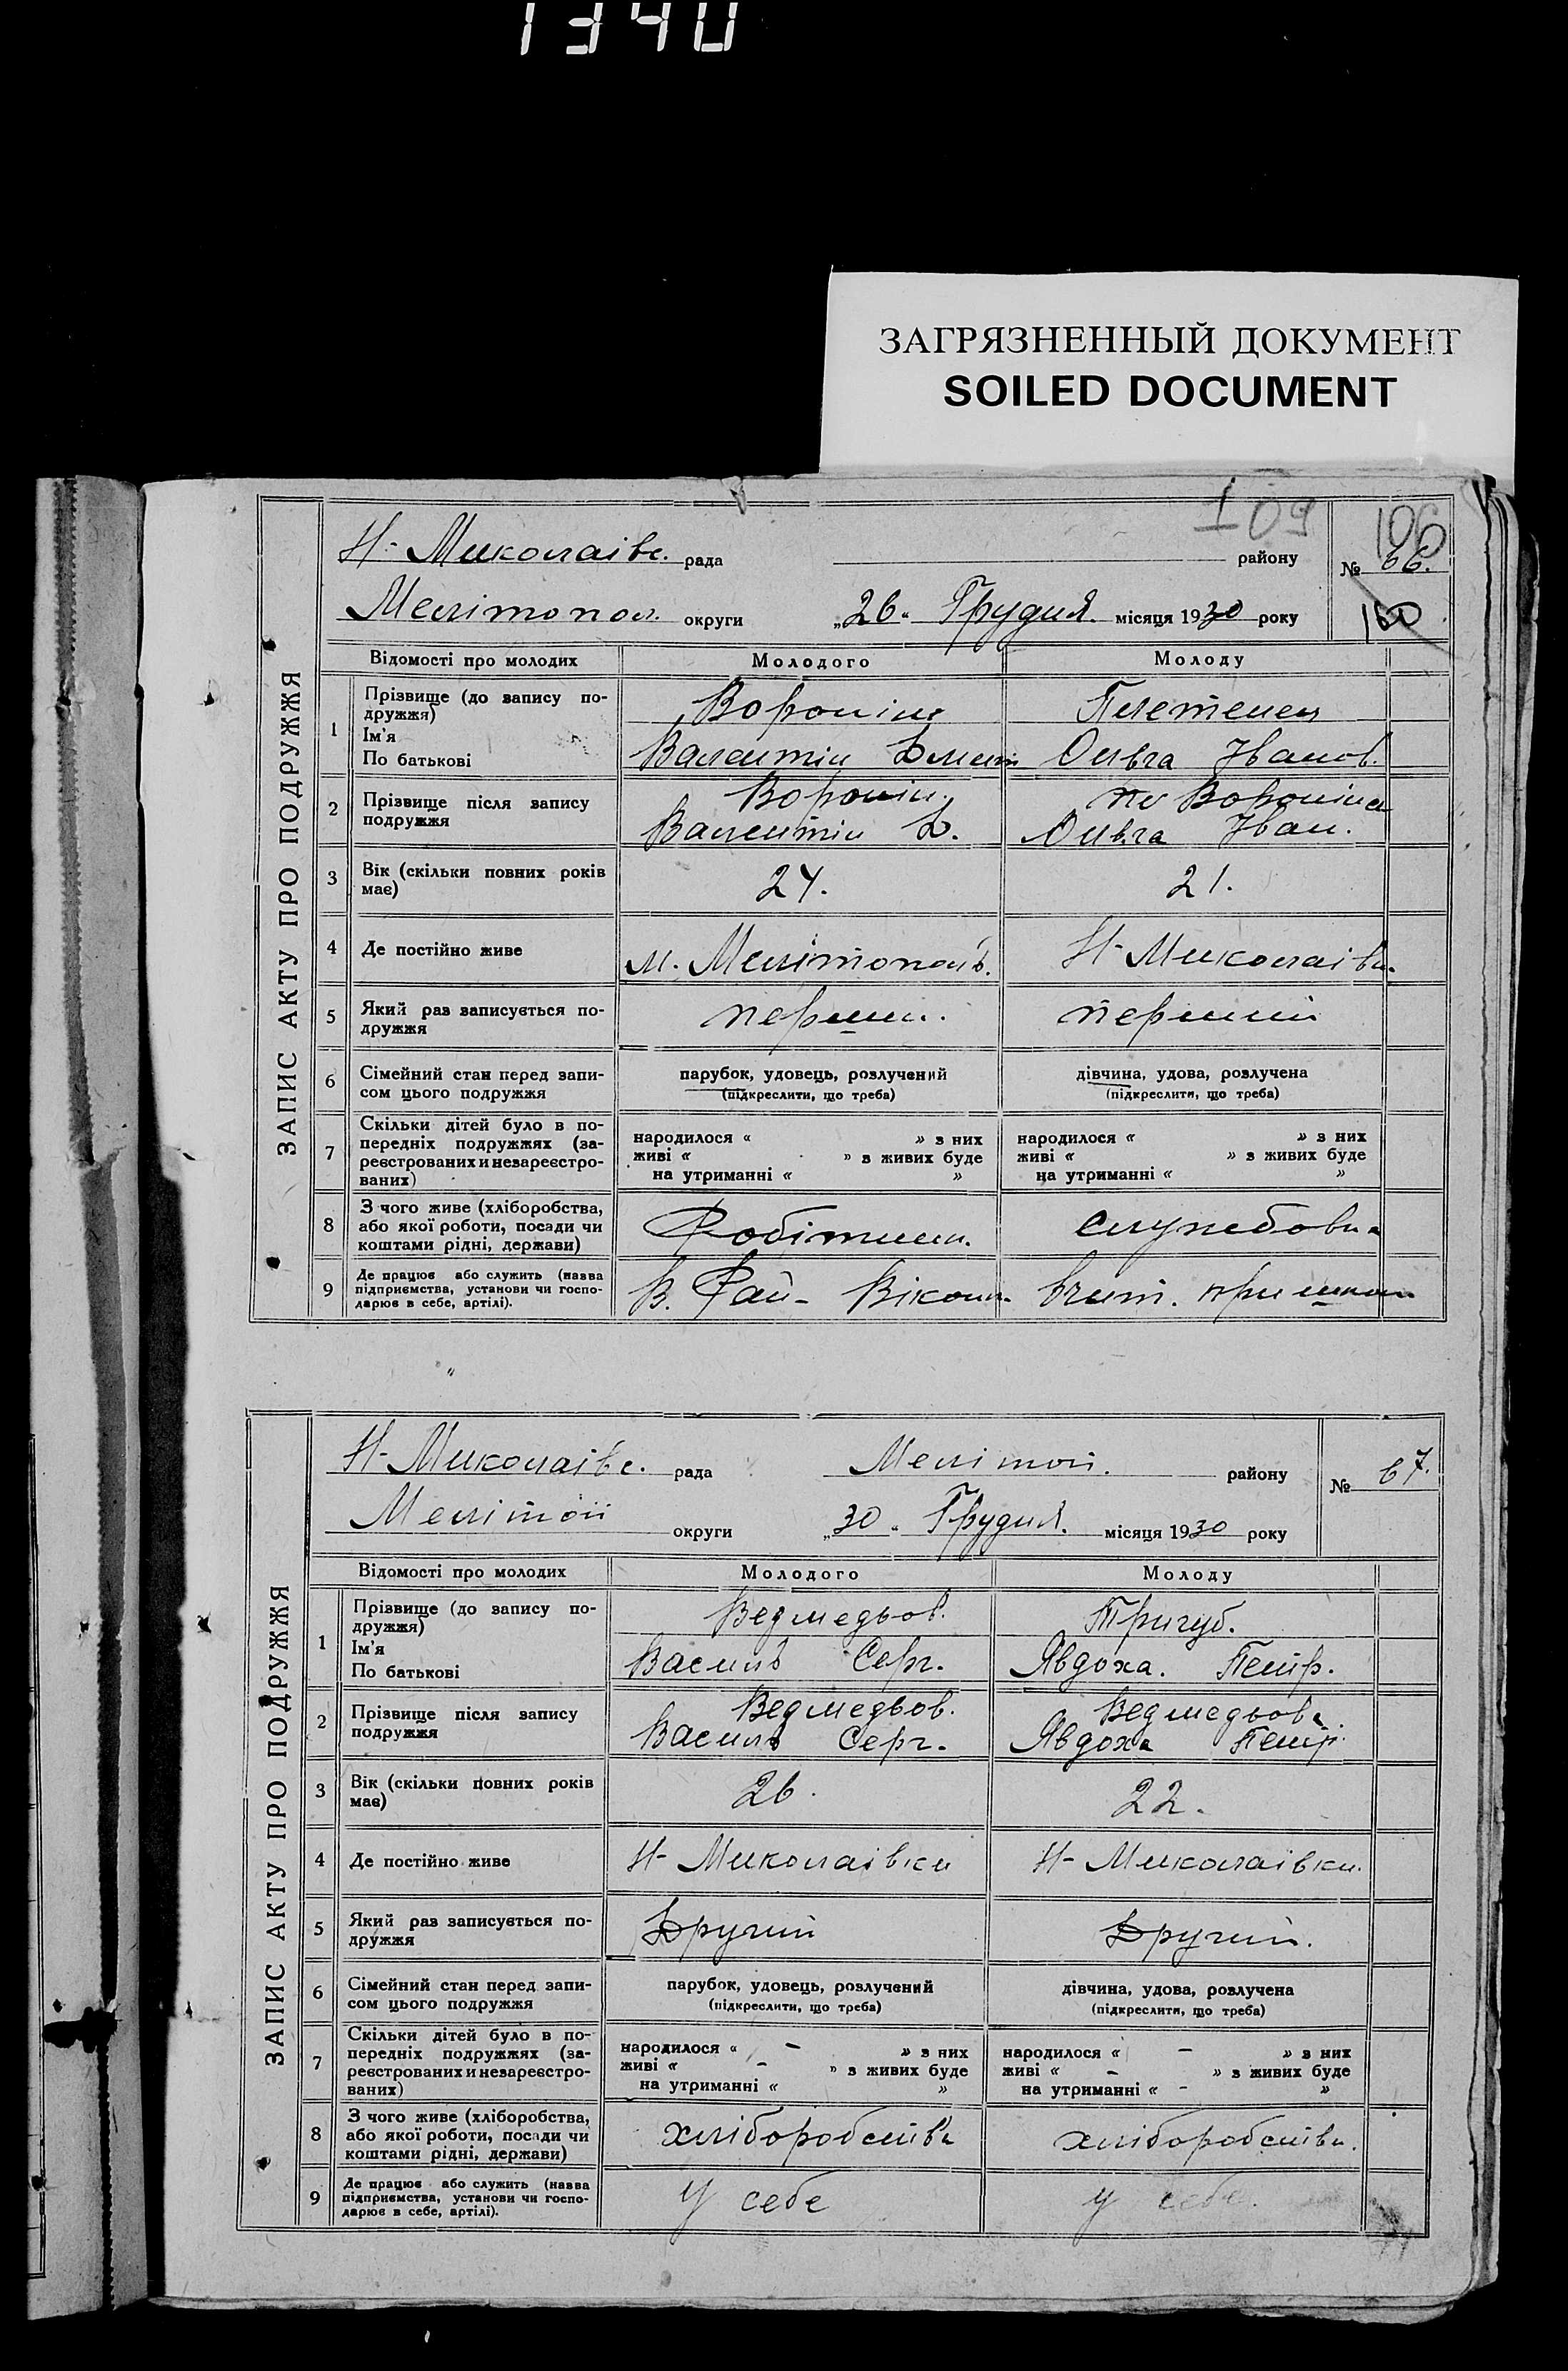 1340
ЗАГРЯЗНЕННЫЙ ДОКУМЕНТ
SOILED DOCUMENT
109
106
Н-Миколаівс. рада району № 66.
Мелітопол. округи „26“ Грудня. місяця 1930 року 160
ЗАПИС АКТУ ПРО ПОДРУЖЖЯ
Відомості про молодих Молодого Молоду
1 Прізвище (до запису по-
дружжя) Воронін Плетенец
Ім'я
По батькові Валентін Дмит Ольга Іванов.
2 Прізвище після запису
подружжя Воронін. Вороніна
Валентін Д. Ольга Іван.
3 Вік (скільки повних років
має) 24. 21.
4 Де постійно живе м. Мелітополь. Н-Миколаівк.
5 Який раз записується по-
дружжя перший. перший
6 Сімейний стан перед запи-
сом цього подружжя парубок, удовець, розлучений дівчина, удова, розлучена
(підкреслити, що треба) (підкреслити, що треба)
7 Скільки дітей було в по-
передніх подружжях (за-
реєстрованих и незареєстро-
ваних)
народилося « » з них народилося « » з них
живі « » з живих буде живі « » з живих буде
на утриманні « » на утриманні « »
8 З чого живе (хліборобства,
або якої роботи, посади чи
коштами рідні, держави) Робітник. службовк
9 Де працює або служить (назва
підприємства, установи чи госпо-
дарює в себе, артілі). В. Рай- Вікон. вчит. при школ
Н-Миколаівс. рада Мелітоп. району № 67.
Мелітоп округи „30“ Грудня. місяця 1930 року
ЗАПИС АКТУ ПРО ПОДРУЖЖЯ
Відомості про молодих Молодого Молоду
1 Прізвище (до запису по-
дружжя) Ведмедьов. Тригуб.
Ім'я
По батькові Василь Серг. Явдоха. Петр.
2 Прізвище після запису
подружжя Ведмедьов. Ведмедьова
Василь Серг. Явдоха Петр.
3 Вік (скільки повних років
має) 26. 22.
4 Де постійно живе Н-Миколаівки Н-Миколаівки.
5 Який раз записується по-
дружжя Другий Другий.
6 Сімейний стан перед запи-
сом цього подружжя парубок, удовець, розлучений дівчина, удова, розлучена
(підкреслити, що треба) (підкреслити, що треба)
7 Скільки дітей було в по-
передніх подружжях (за-
реєстрованих и незареєстро-
ваних)
народилося « – » з них народилося « – » з них
живі « – » з живих буде живі « – » з живих буде
на утриманні « » на утриманні « – »
8 З чого живе (хліборобства,
або якої роботи, посади чи
коштами рідні, держави) хліборобств хліборобств.
9 Де працює або служить (назва
підприємства, установи чи госпо-
дарює в себе, артілі). У себе У себе.